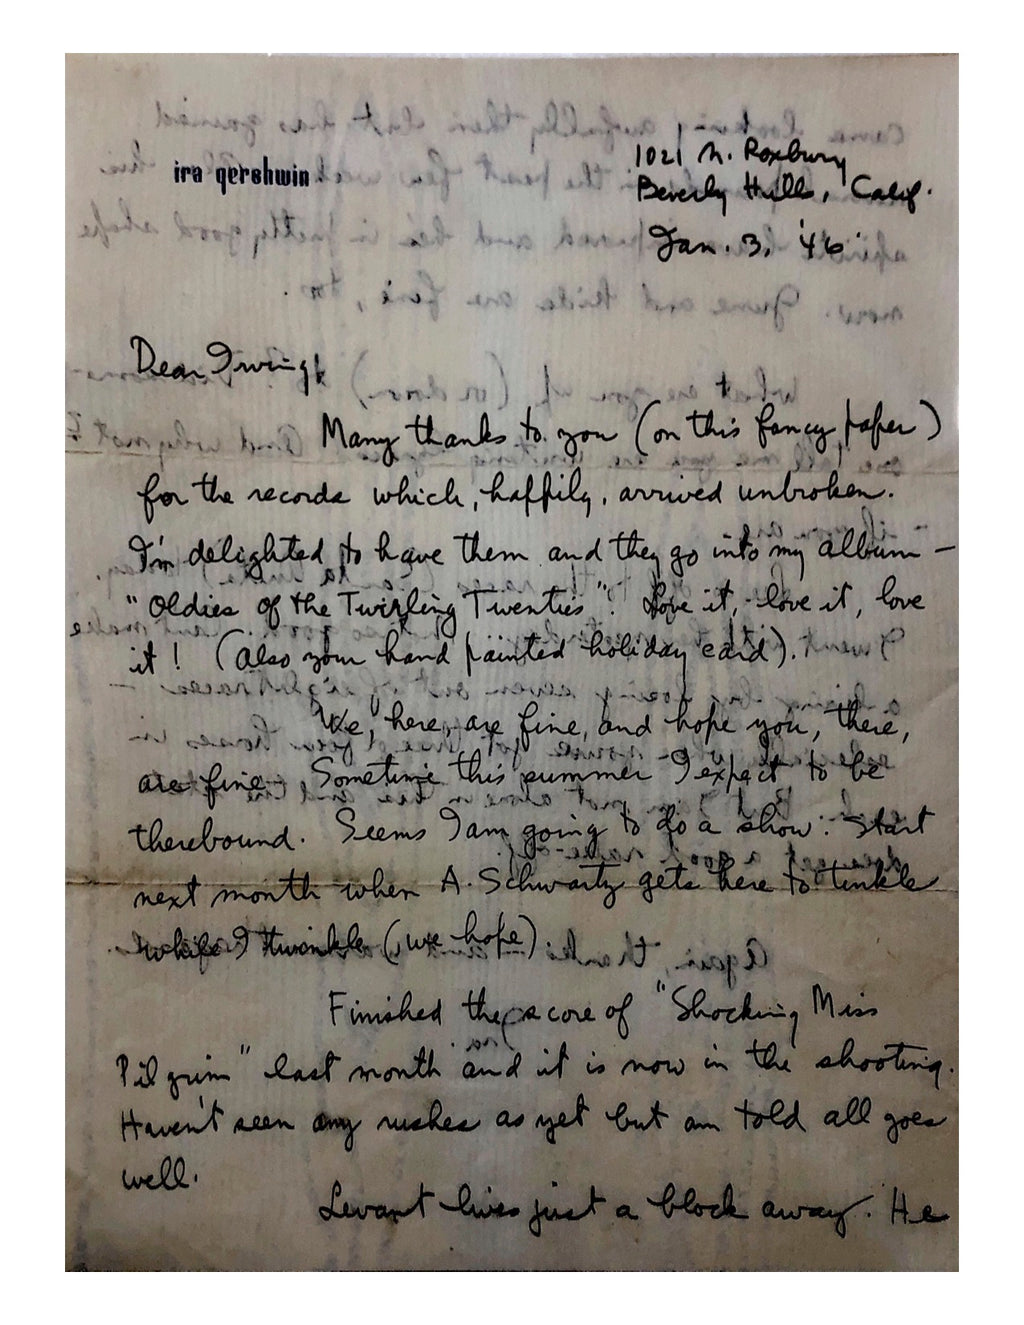 ira gershwin
1021 N. Roxbury
Beverly Hills, Calif.
Jan. 3, '46
Dear Irving:
Many thanks to you (on this fancy paper)
for the records which, happily, arrived unbroken.
I'm delighted to have them and they go into my album —
"Oldies of the Twirling Twenties". Love it, love it, love
it! (Also your hand painted holiday card).
We, here, are fine, and hope you, there,
are fine. Sometime this summer I expect to be
therebound. Seems I am going to do a show. Start
next month when A. Schwartz gets here to tinkle
while I twinkle (we hope).
Finished the score of "Shocking Miss
Pilgrim" last month and it is now in the shooting.
Haven't seen any rushes as yet but am told all goes
well.
Levant lives just a block away. He